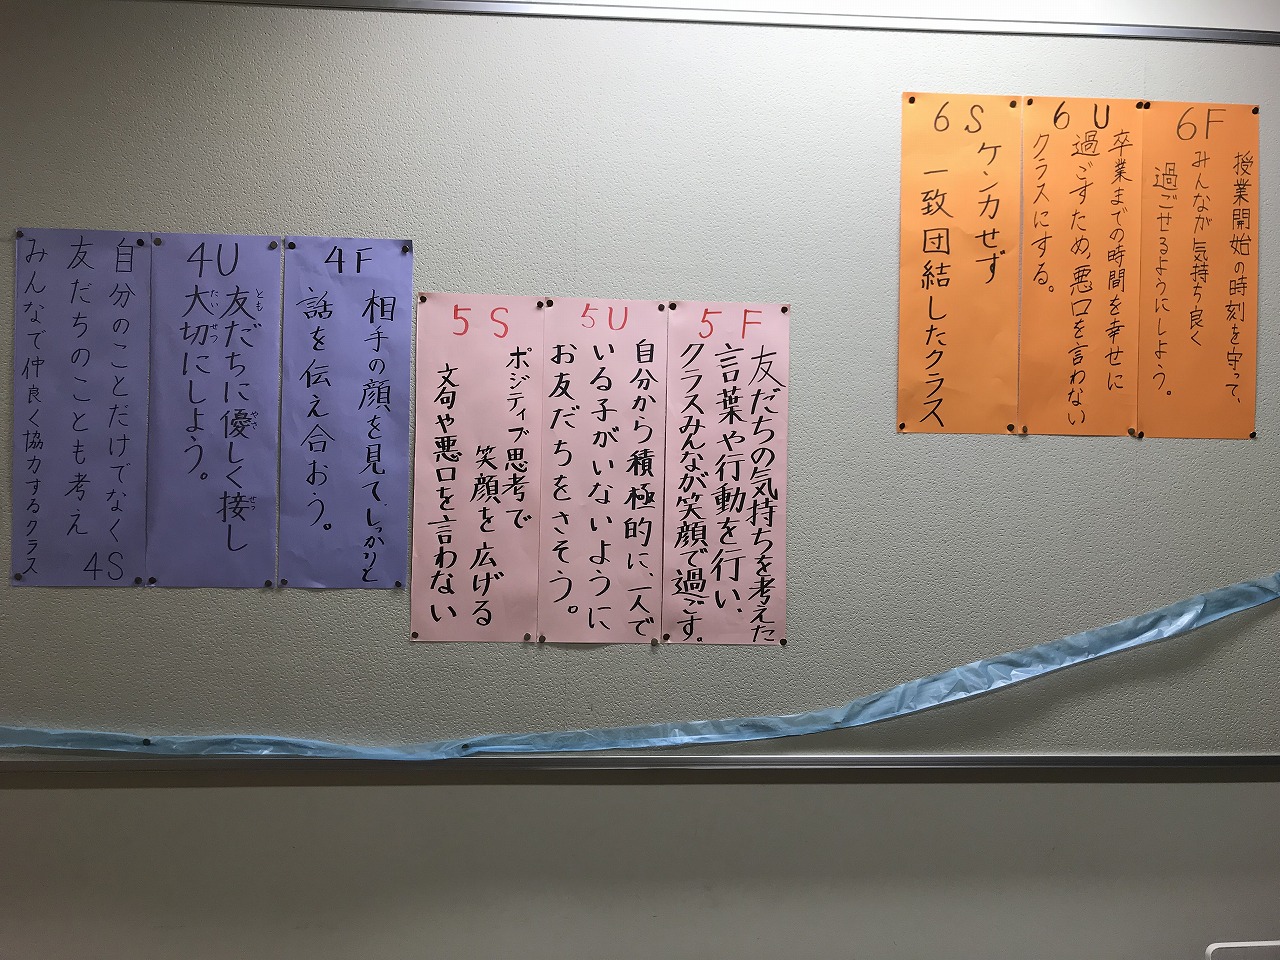 6F
授業開始の時刻を守って、
みんなが気持ち良く
過ごせるようにしよう。
6U
卒業までの時間を幸せに
過ごすため、悪口を言わない
クラスにする。
6S
ケンカせず
一致団結したクラス
5F
友だちの気持ちを考えた
言葉や行動を行い、
クラスみんなが笑顔で過ごす。
5U
自分から積極的に、一人で
いる子がいないように
お友だちをさそう。
5S
ポジティブ思考で
笑顔を広げる
文句や悪口を言わない
4F
相手の顔を見て、しっかりと
話を伝え合おう。
4U
友だちに優しく接し
とも やさ せっ
大切にしよう。
たいせつ
自分のことだけでなく
友だちのことも考え
みんなで仲良く協力するクラス
4S